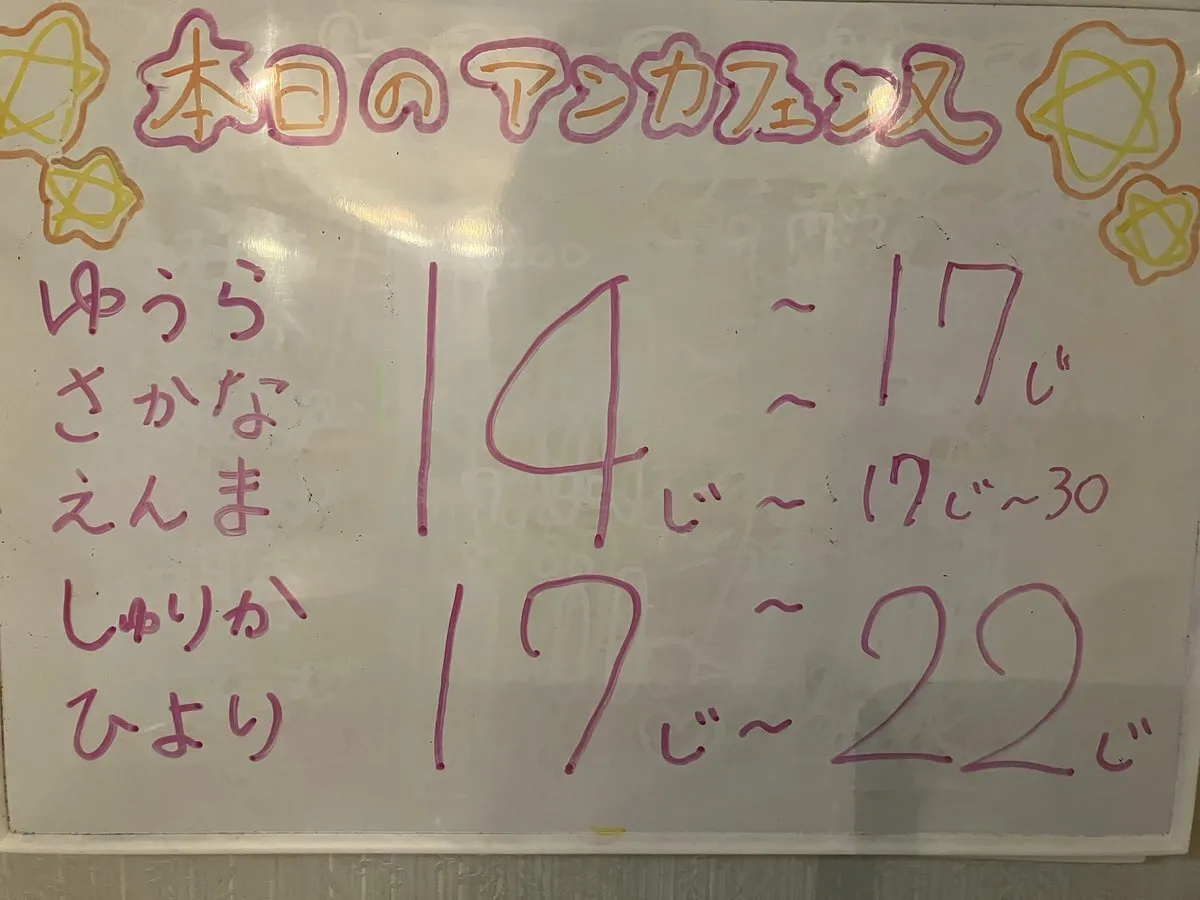 本日のアンカフェンヌ
ゆうら 〜 17じ
さかな 14 〜
えんま じ〜 17じ〜30
しゅりか 17 〜 22
ひより じ〜 じ